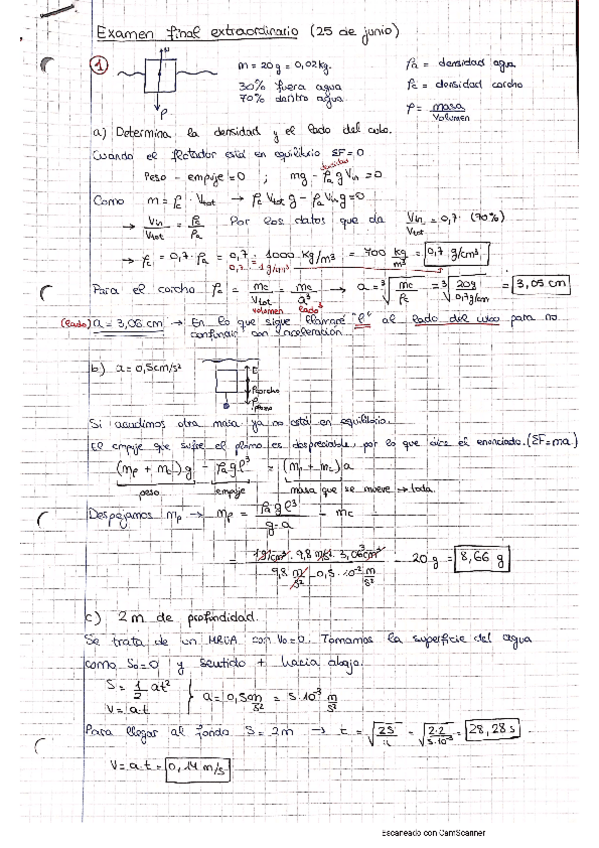 Examen final extraordinario (25 de junio)
1
N
P
m = 20g = 0,02kg.
30% fuera agua
70% dentro agua
ρa = densidad agua
ρc = densidad corcho
ρ = masa / Volumen
a) Determina la densidad y el lado del cubo.
Cuando el flotador está en equilibrio ΣF=0
densidad
Peso - empuje = 0 ; mg - ρa g Vin = 0
Como m = ρc · Vtot → ρc Vtot g - ρa Vin g = 0
→ Vin / Vtot = ρc / ρa Por los datos que da Vin / Vtot = 0,7 (70%)
→ ρc = 0,7 · ρa = 0,7 · 1000 kg/m3 = 700 kg/m³ = 0,7 g/cm³
0,7 · 1g/cm³
Para el corcho ρc = mc / Vtot = mc / a³ → a = ³√(mc / ρc) = ³√(20g / 0,7g/cm) = 3,05 cm
volumen lado³
(lado) a = 3,06 cm → En lo que sigue llamaré "l" al lado del cubo para no
confundir con aceleración
b) a = 0,5cm/s²
E
Pcorcho
Pplomo
Si añadimos otra masa ya no está en equilibrio.
El empuje que sufre el plomo es despreciable, por lo que dice el enunciado. (ΣF=ma)
(mp + mc) g - ρa g l³ = (mp + mc) a
peso empuje masa que se mueve → toda.
Despejamos mp → mp = ρa g l³ / g-a - mc
= 1g/cm³ · 9,8 m/s² · 3,06³cm³ / 9,8 m/s² - 0,5 · 10⁻² m/s² - 20 g = 8,66 g
c) 2m de profundidad.
Se trata de un MRUA con V0=0. Tomamos la superficie del agua
como S0=0 y sentido + hacia abajo.
S = 1/2 at²
V = a·t
a = 0,5 cm/s² = 5·10⁻³ m/s²
Para llegar al fondo S = 2m → t = √(2S / a) = √(2·2 / 5·10⁻³) = 28,28 s
V = a·t = 0,14 m/s
Escaneado con CamScanner